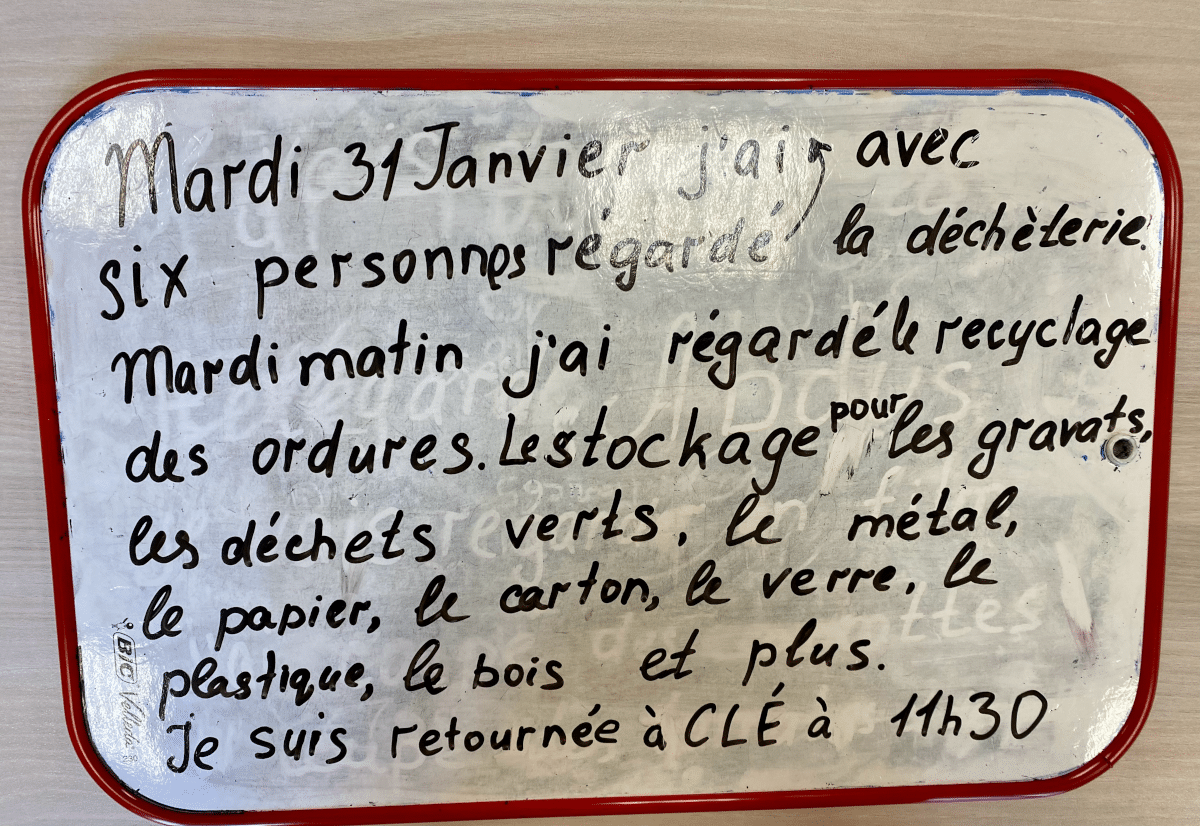 Mardi 31 Janvier j'ai avec
six personnes régardé la déchèterie.
Mardi matin j'ai régardé le recyclage
des ordures. Le stockage pour les gravats,
les déchets verts, le métal,
le papier, le carton, le verre, le
plastique, le bois et plus.
Je suis retournée à CLÉ à 11h30
BIC Velleda